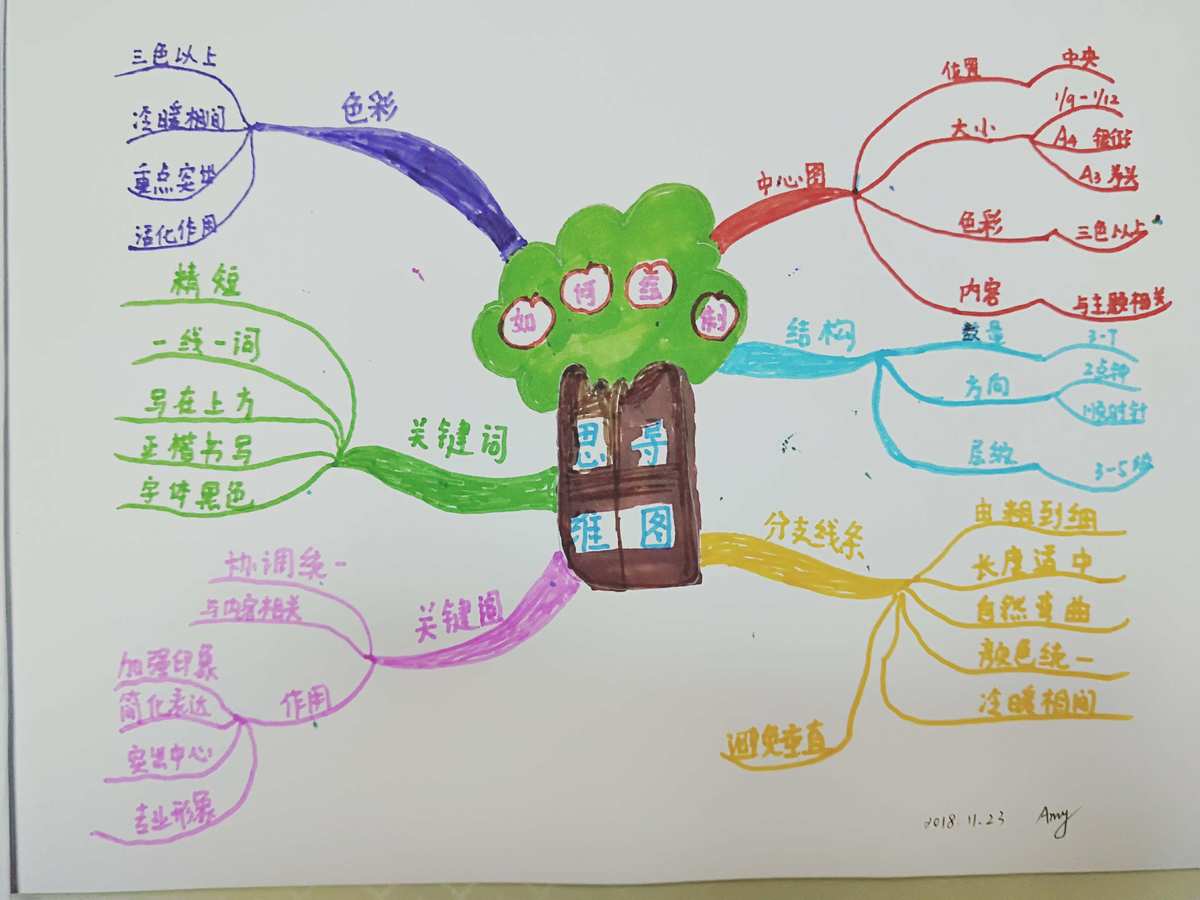 如何绘制
思导
维图
中心图
位置
中央
大小
1/9-1/12
A4 银行卡
A3
色彩
三色以上
内容
与主题相关
结构
数量
3-7
方向
2点钟
顺时针
层级
3-5级
分支线条
由粗到细
长度适中
自然弯曲
颜色统一
冷暖相间
避免垂直
关键词
协调统一
与内容相关
作用
加强印象
简化表达
突出中心
专业形象
关键词
精短
一线一词
写在上方
正楷书写
字体黑色
色彩
三色以上
冷暖相间
重点突出
活化作用
2018.11.23 Amy